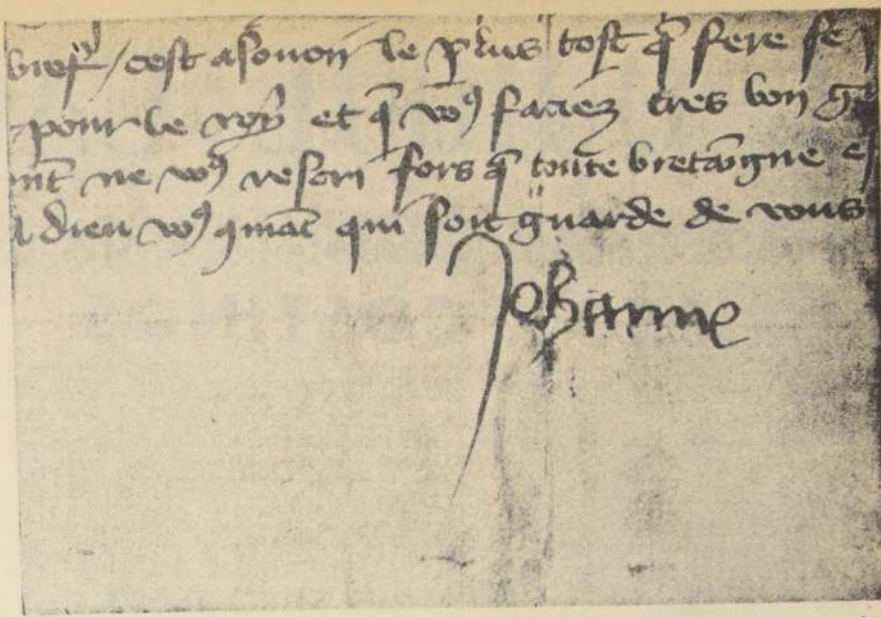 brief / cest asavoir le plus tost q̄ fere se
pour le roy et q̄ voꝰ faciez tres bon
ne voꝰ rescri fors q̄ toute bretaingne
A dieu voꝰ qmāt qui soit guarde de vous
Jehanne